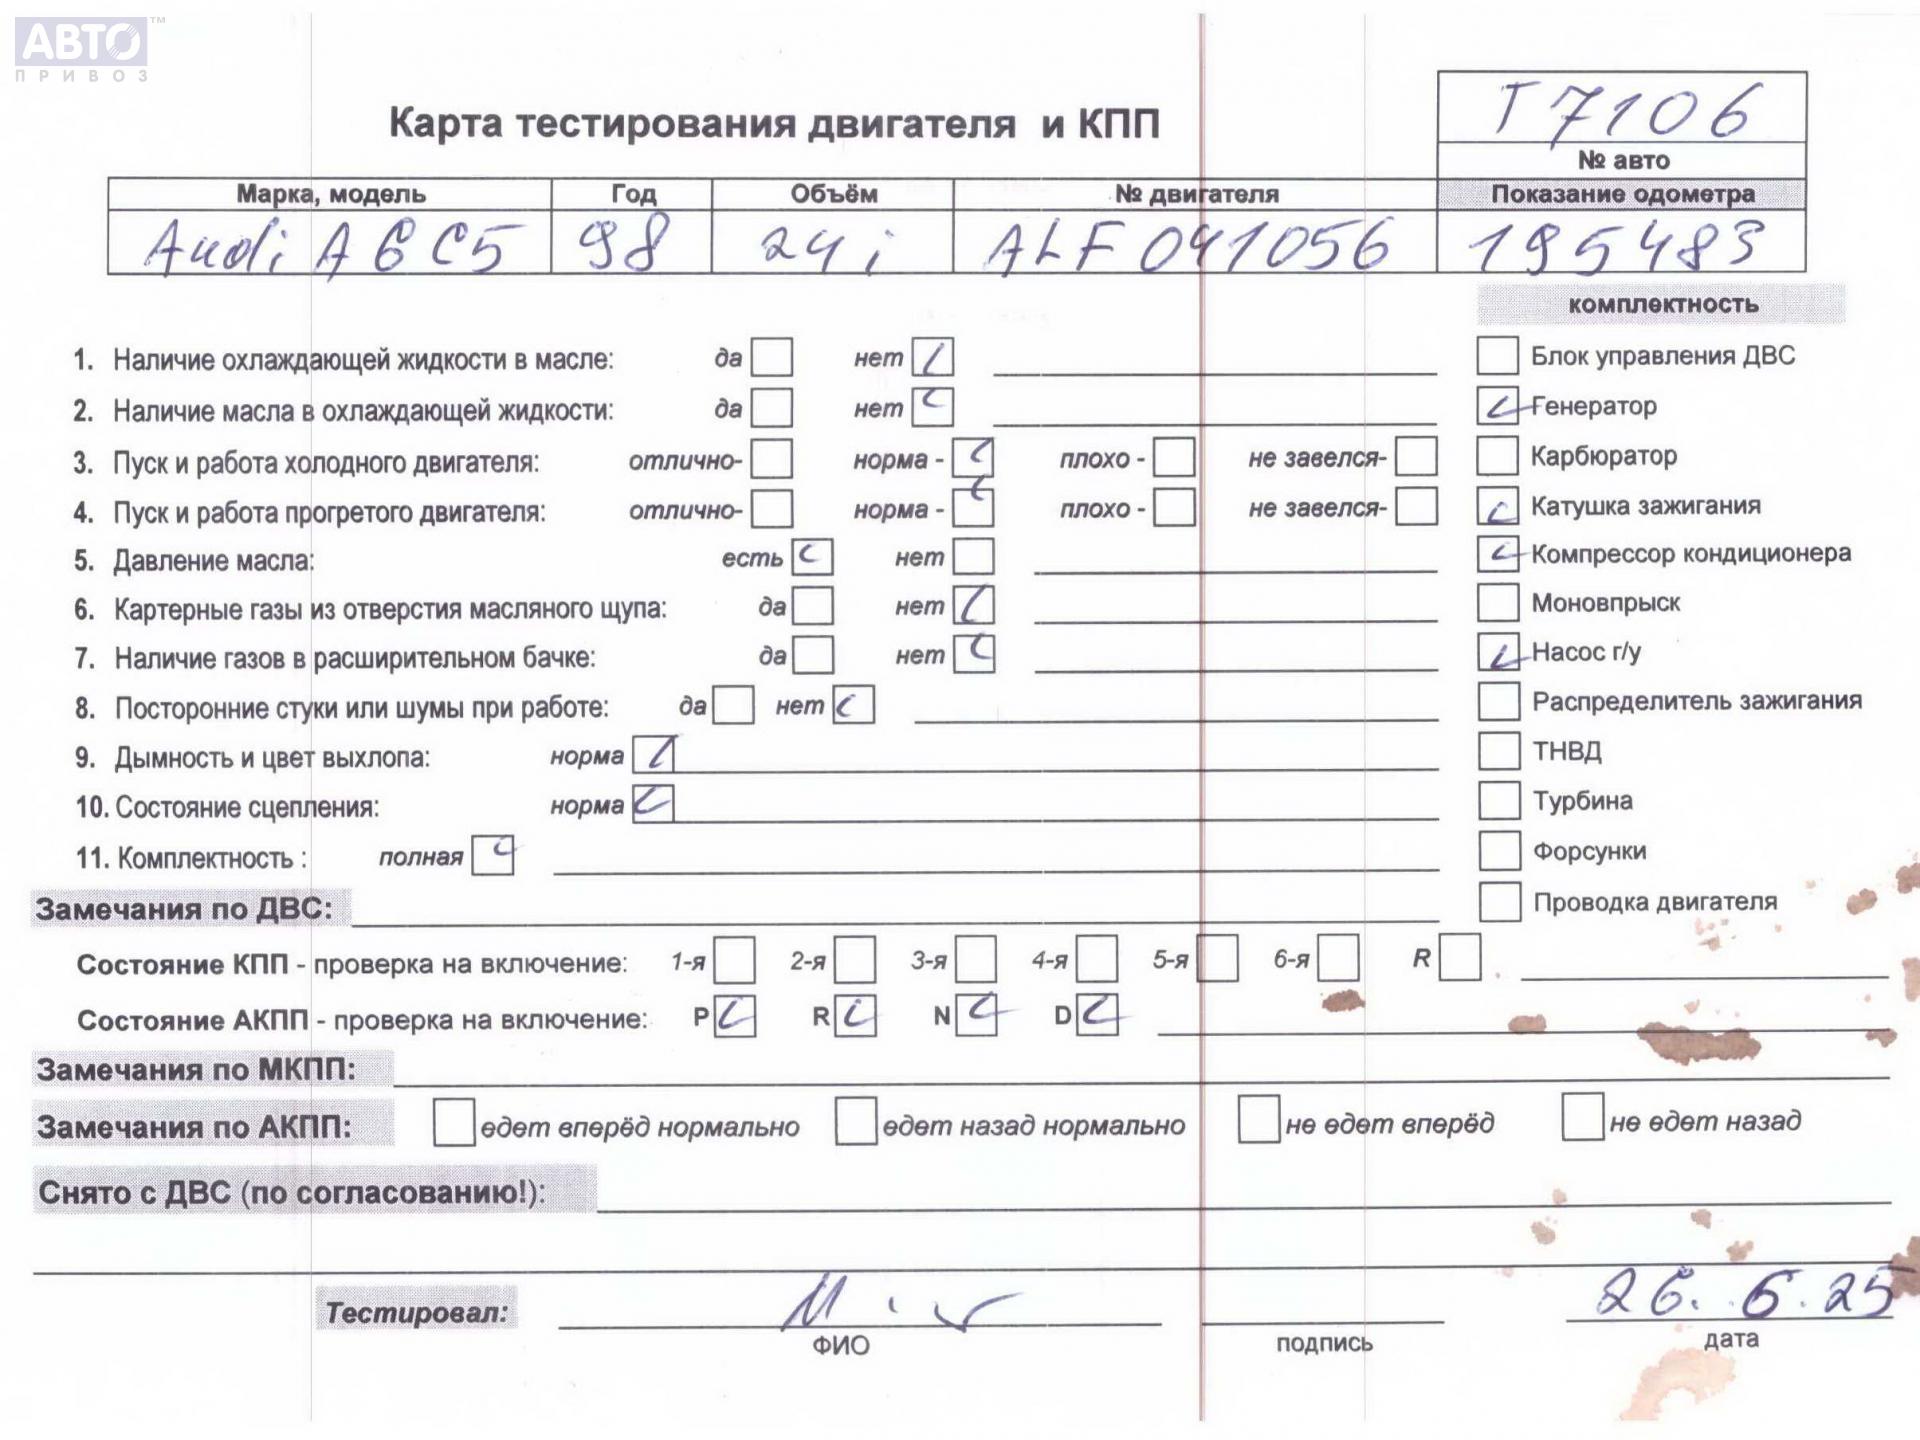 АВТО™
ПРИВОЗ
Карта тестирования двигателя и КПП
T 7106
№ авто
Марка, модель Год Объём № двигателя Показание одометра
Audi A6 C5 98 24 i ALF 041056 195483
комплектность
1. Наличие охлаждающей жидкости в масле: да нет Блок управления ДВС
2. Наличие масла в охлаждающей жидкости: да нет Генератор
3. Пуск и работа холодного двигателя: отлично- норма - плохо - не завелся- Карбюратор
4. Пуск и работа прогретого двигателя: отлично- норма - плохо - не завелся- Катушка зажигания
5. Давление масла: есть нет Компрессор кондиционера
6. Картерные газы из отверстия масляного щупа: да нет Моновпрыск
7. Наличие газов в расширительном бачке: да нет Насос г/у
8. Посторонние стуки или шумы при работе: да нет Распределитель зажигания
9. Дымность и цвет выхлопа: норма ТНВД
10. Состояние сцепления: норма Турбина
11. Комплектность : полная Форсунки
Замечания по ДВС: Проводка двигателя
Состояние КПП - проверка на включение: 1-я 2-я 3-я 4-я 5-я 6-я R
Состояние АКПП - проверка на включение: P R N D
Замечания по МКПП:
Замечания по АКПП: едет вперёд нормально едет назад нормально не едет вперёд не едет назад
Снято с ДВС (по согласованию!):
Тестировал: 26. 6. 25
ФИО подпись дата